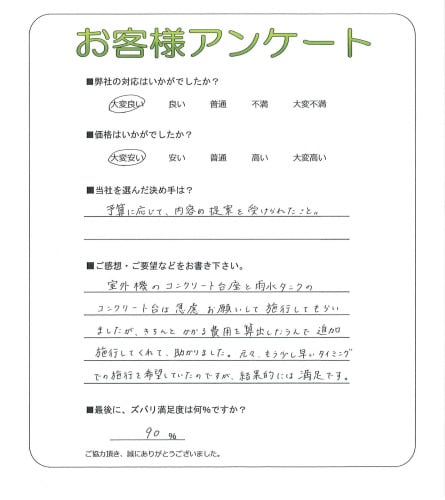 お客様アンケート
■弊社の対応はいかがでしたか?
大変良い 良い 普通 不満 大変不満
■価格はいかがでしたか?
大変安い 安い 普通 高い 大変高い
■当社を選んだ決め手は?
予算に応じて、内容の提案を受けられたこと。
■ご感想・ご要望などをお書き下さい。
室外機のコンクリート台座と雨水タンクの
コンクリート台は急慮お願いして施行してもらい
ましたが、きちんとかかる費用を算出したうえで追加
施行してくれて、助かりました。元々、もう少し早いタイミング
での施行を希望していたのですが、結果的には満足です。
■最後に、ズバリ満足度は何%ですか?
90 %
ご協力頂き、誠にありがとうございました。